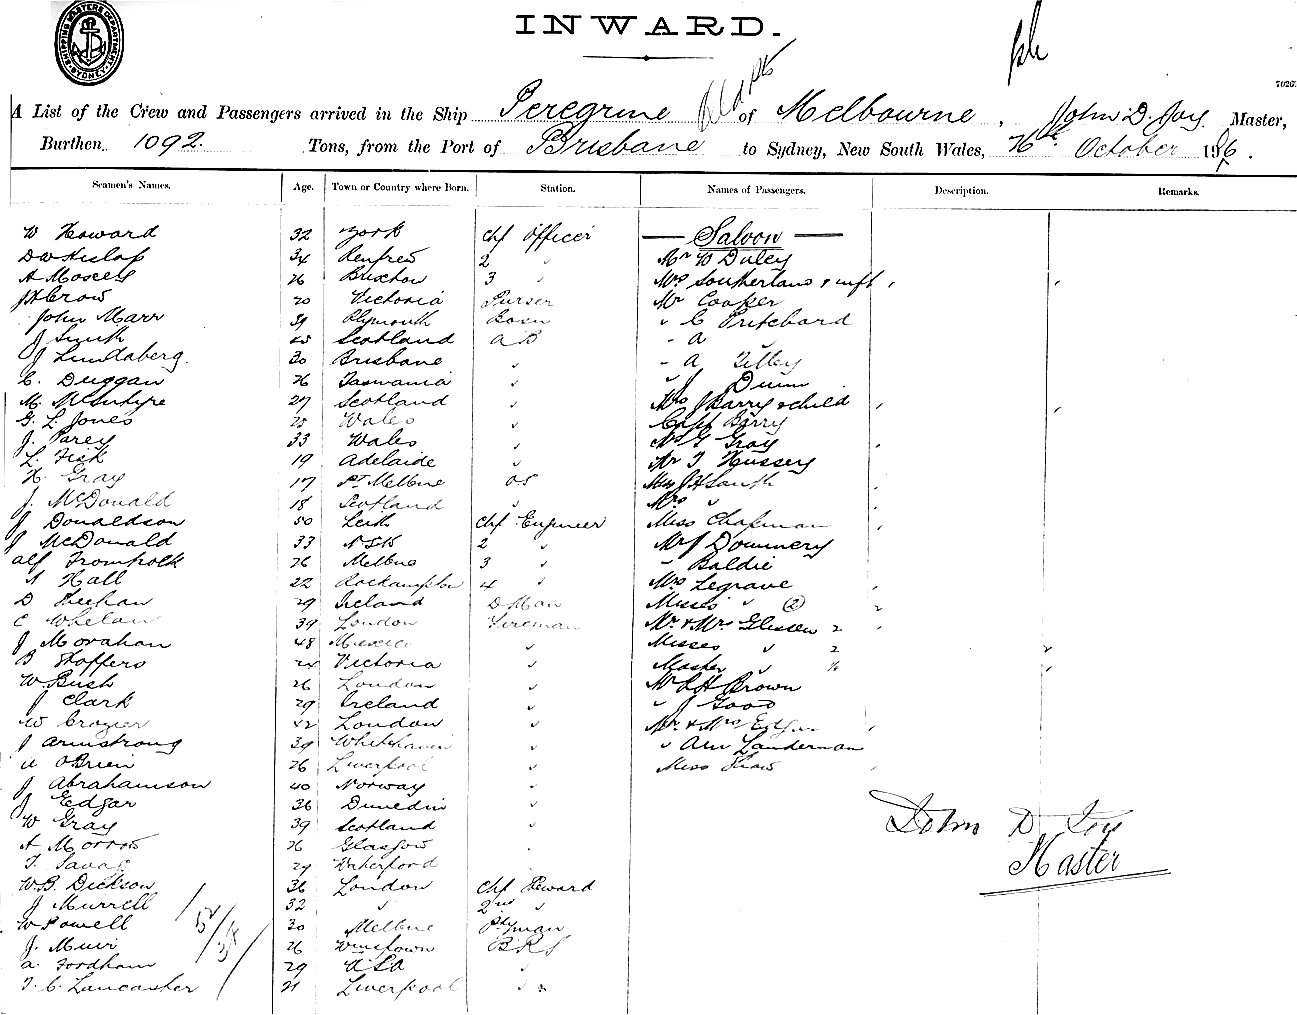 SHIPPING MASTERS DEPARTMENT SYDNEY
INWARD.
A List of the Crew and Passengers arrived in the Ship Peregrine of Melbourne, John D. Joy Master,
Burthen 1092. Tons, from the Port of Brisbane to Sydney, New South Wales, 26th October 1896.
Seamen's Names. Age. Town or Country where Born. Station. Names of Passengers. Description. Remarks.
W Howard 32 York Chf Officer — Saloon —
D W Hislop 34 Renfrew 2 " Mr W Duley
A Moseley 26 Brixton 3 " Mr Southerland & wife
J H Crow 20 Victoria Purser Mr Cooper
John Marr 39 Plymouth Bosn " C Pritchard
J Smith Scotland A B " A "
J Lundaberg. 30 Brisbane " " A Tilley
C. Duggan 26 Tasmania " " J Dunn
M. McIntyre 27 Scotland " Mrs J Barry & child
G. L. Jones 25 Wales " Capt Barry
J. Parey 33 Wales " G Gray
L. Fisk 19 Adelaide " Mr T Hussey
H. Gray 17 Pt Melbne OS
J. McDonald 18 Scotland " Mrs "
J Donaldson 50 Leith Chf Engineer Miss Chapman
J McDonald 33 2 " Mr J Downery
Alf Trompolk 26 Melbne 3 " " Baldie
A Hall 22 Rockampton 4 " Mrs Legrave
D Sheehan 29 Ireland D Man Misses " (2)
C Whelan 39 London Fireman Mr & Mrs Gleeson 2
J Monahan 48 Mexico " Misses " 2
B Stoffers 24 Victoria " Master "
W Bush 26 London " Mr L H Brown
J Clark 29 Ireland " " J Good
W Crozier 42 London " Mr & Mrs Edgar
J Armstrong 39 Whitehaven " " Landerman
O'Brien 26 Liverpool " Miss Shaw
J Abrahamson 40 Norway "
J Edgar 36 Dunedin "
W Gray 39 Scotland " John D Joy
A Morrow 26 Glasgow " Master
T. Savag 29 Waterford
W B. Dickson 36 London Chf Steward
J Murrell 32 " 2nd "
W Powell 30 Melbne Ptyman
J. Muir 26 BRS
A. Fordham 29 USA "
T. C. Lancaster 21 Liverpool " "